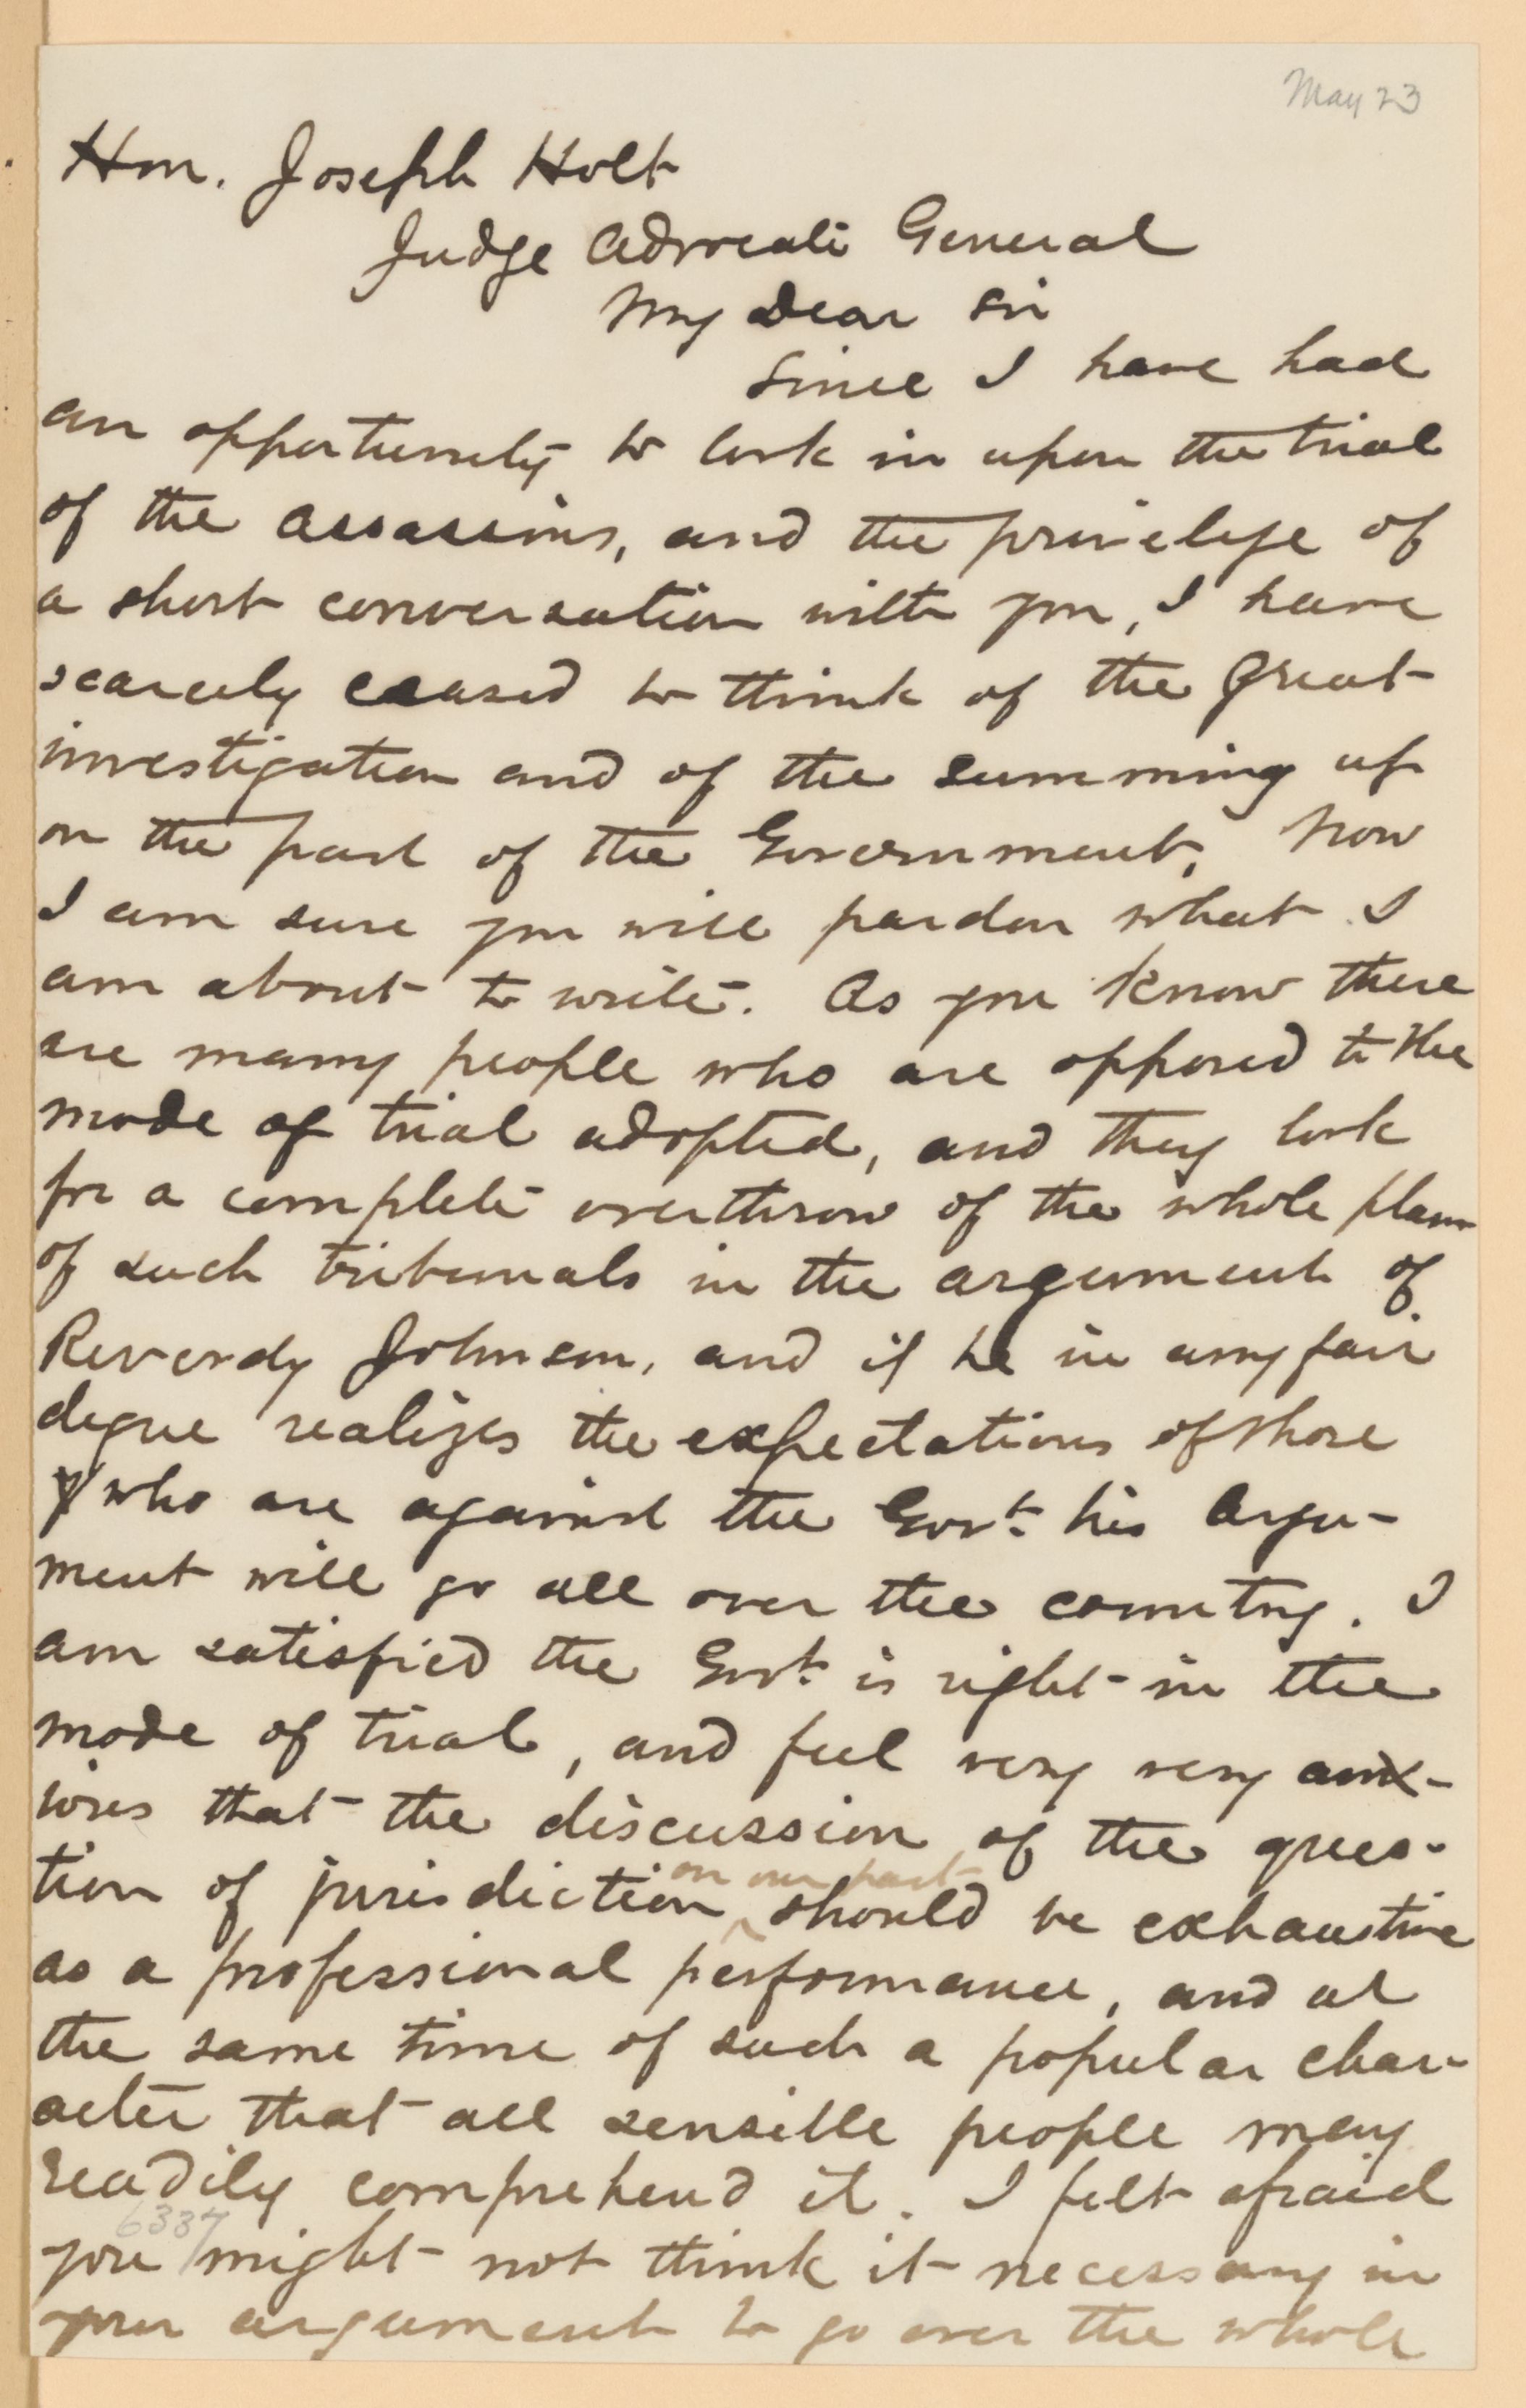 May 23
Hon. Joseph Holt
Judge Advocate General
My Dear Sir
Since I have had
an opportunity to look in upon the trial
of the assassins, and the privelege of
a short conversation with you, I have
scarcely ceased to think of the great
investigation and of the summing up
on the part of the Government. Now
I am sure you will pardon what I
am about to write. As you know there
are many people who are opposed to the
mode of trial adopted, and they look
for a complete overthrow of the whole plan
of such tribunals in the argument of
Reverdy Johnson, and if he in any fair
degree realizes the expectations of those
who are against the Govt. his argu-
ment will go all over the country. I
am satisfied the Govt. is right in the
mode of trial, and feel very very anx-
ious that the discussion of the ques-
on our part
tion of jurisdiction ^ should be exhaustive
as a professional performance, and at
the same time of such a popular char-
acter that all sensible people may
readily comprehend it. I felt afraid
6337
you might not think it necessary in
your argument to go over the whole